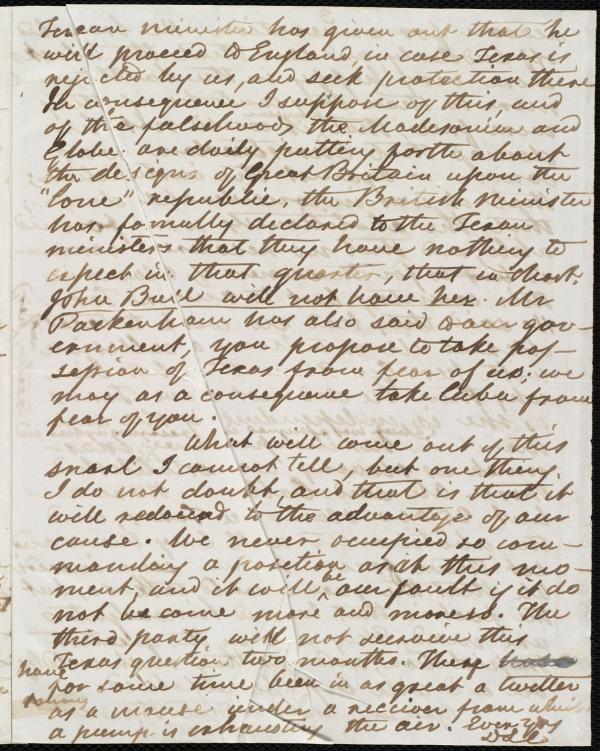 Texan minister has given out that he
will proceed to England, in case Texas is
rejected by us, and seek protection there
In consequence I suppose of this, and
of the falsehoods the Madisonian and
Globe are daily putting forth about
the designs of Great Britain upon the
"lone" republic, the British minister
has formally declared to the Texan
ministers that they have nothing to
expect in that quarter, that in short,
John Bull will not have her. Mr
Packenham has also said to our gov-
ernment, you propose to take pos-
session of Texas from fear of us; we
may as a consequence take Cuba from
fear of you.
What will come out of this
snarl I cannot tell, but one thing
I do not doubt, and that is that it
will redound to the advantage of our
cause. We never occupied so com-
manding a position as at this mo-
ment, and it will be our fault if it do
not become more and more so. The
third party will not survive this
Texas question two months. These
have
for some time been in as great a twitter
as a mouse under a receiver from which
a pump is exhausting the air. Ever yrs